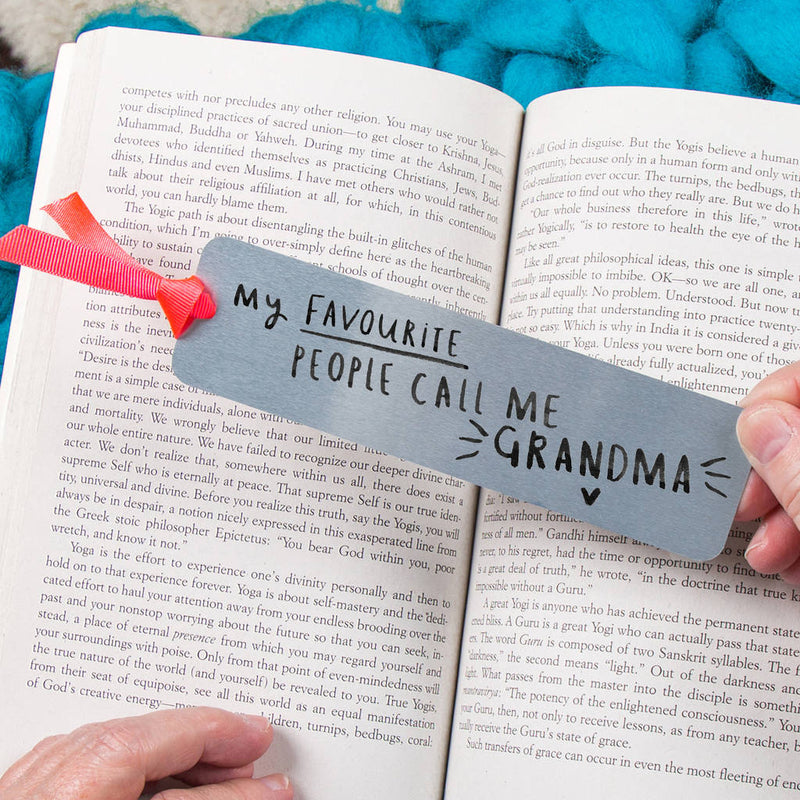 My FAVOURITE
PEOPLE CALL ME
GRANDMA
competes with nor precludes any other religion. You may use your Yoga—
your disciplined practices of sacred union—to get closer to Krishna, Jesus,
Muhammad, Buddha or Yahweh. During my time at the Ashram, I met
devotees who identified themselves as practicing Christians, Jews, Bud-
dhists, Hindus and even Muslims. I have met others who would rather not
talk about their religious affiliation at all, for which, in this contentious
world, you can hardly blame them.
The Yogic path is about disentangling the built-in glitches of the human
condition, which I'm going to over-simplify define here as the heartbreaking
ability to sustain
have found
schools of thought over the cen-
inherently
tion attributes
ness is the
civilization's
"Desire is the
ment is a simple case
that we are mere individuals, alone with
and mortality. We wrongly believe that our limited
our whole entire nature. We have failed to recognize our deeper divine char-
acter. We don't realize that, somewhere within us all, there does exist a
supreme Self who is eternally at peace. That supreme Self is our true iden-
tity, universal and divine. Before you realize this truth, say the Yogis, you will
always be in despair, a notion nicely expressed in this exasperated line from
the Greek stoic philosopher Epictetus: "You bear God within you, poor
wretch, and know it not."
Yoga is the effort to experience one's divinity personally and then to
hold on to that experience forever. Yoga is about self-mastery and the dedi-
cated effort to haul your attention away from your endless brooding over the
past and your nonstop worrying about the future so that you can seek, in-
stead, a place of eternal presence from which you may regard yourself and
your surroundings with poise. Only from that point of even-mindedness will
the true nature of the world (and yourself) be revealed to you. True Yogis,
from their seat of equipoise, see all this world as an equal manifestation
of God's creative energy—men, children, turnips, bedbugs, coral:
it's all God in disguise. But the Yogis believe a human
opportunity, because only in a human form and only with
God-realization ever occur. The turnips, the bedbugs, th
get a chance to find out who they really are. But we do h
"Our whole business therefore in this life," wrote
rather Yogically, "is to restore to health the eye of the h
may be seen."
Like all great philosophical ideas, this one is simple
virtually impossible to imbibe. OK—so we are all one, an
within us all equally. No problem. Understood. But now tr
place. Try putting that understanding into practice twenty-
not so easy. Which is why in India it is considered a give
your Yoga. Unless you were born one of those
already fully actualized, you'll
enlightenment
"I saw
fortified without
ness of all men." Gandhi himself
never, to his regret, had the time or opportunity to find
is a great deal of truth," he wrote, "in the doctrine that true k
impossible without a Guru."
A great Yogi is anyone who has achieved the permanent state
A Guru is a great Yogi who can actually pass that state
The word Guru is composed of two Sanskrit syllables. The f
"darkness," the second means "light." Out of the darkness and
light. What passes from the master into the disciple is somethin
"The potency of the enlightened consciousness." You
your Guru, then, not only to receive lessons, as from any teacher, b
receive the Guru's state of grace.
Such transfers of grace can occur in even the most fleeting of en